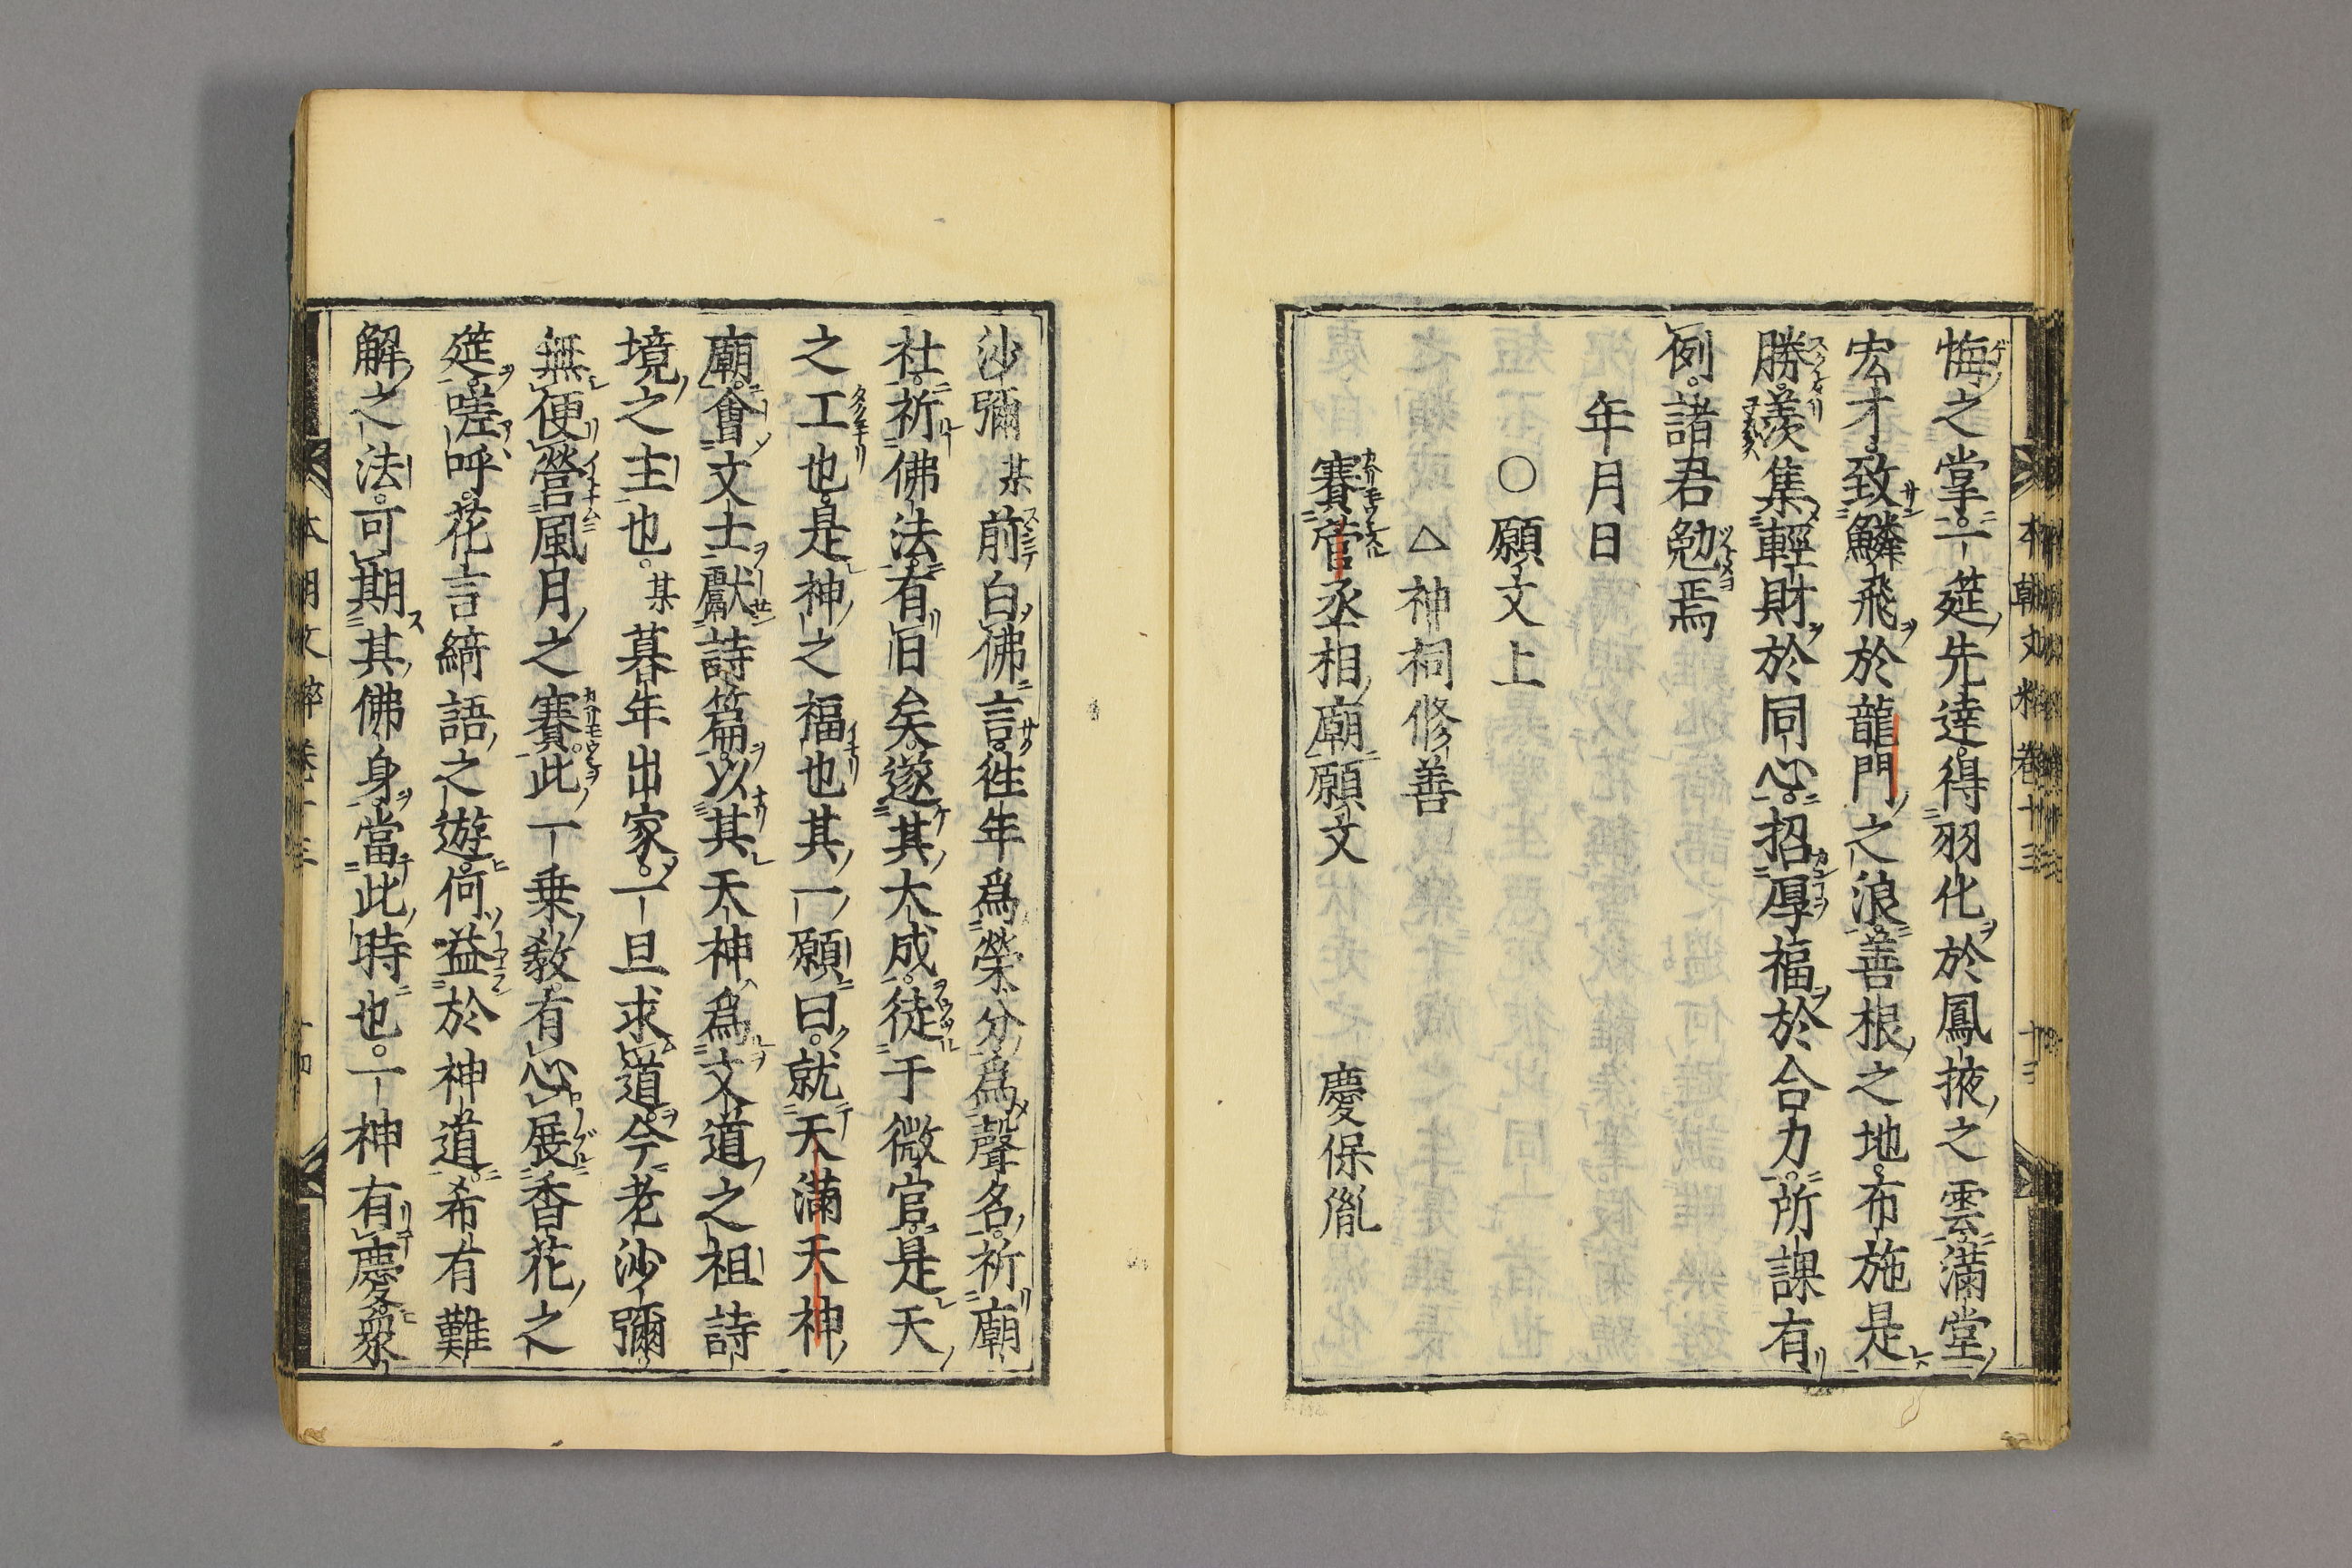 悔之掌。一筵先達。得羽化於鳳掖之雲。滿堂
宏才。致鱗飛於龍門之浪。善根之地。布施是
勝。羨集輕財於同心。招厚福於合力。所課有
例。諸君勉焉
年月日
○願文上
△神祠修善
賽菅丞相廟願文 慶保胤
沙彌某前白佛言。徃年為榮分為聲名。祈廟
社。祈佛法。有日矣。遂其大成。徒于微官。是天
之工也。是神之福也。其一願曰。就天滿天神
廟。會文士獻詩篇。以其天神為文道之祖詩
境之主也。某暮年出家。一旦求道。今老沙彌
無便營風月之賽。此一乗教。有心展香花之
筵。嗟呼。花言綺語之遊。何益於神道。希有難
解之法。可期其佛身。當此時也。一神有慶衆
本朝文粹卷十三 十三
本朝文粹卷十三 十四